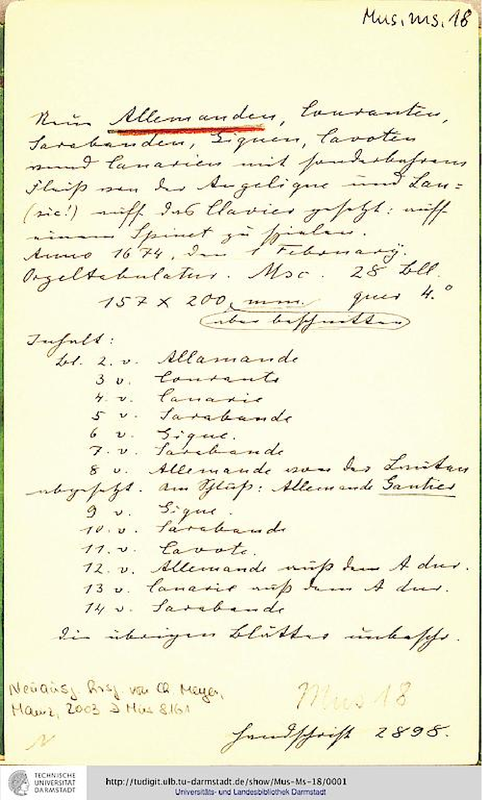 Mus. ms. 18
Neue Allemanden, Couranten,
Sarabanden, Giquen, Cavoten
unnd Canarien mit sonderbahrem
Fleiß von der Angelique und Lau=
(sic!) auff das Clavier gesetzt: auff
einem Spinet zu spielen.
Anno 1674, den 1 February.
Orgeltabulatur. Msc. 28 Bll.
157 x 200 mm. quer 4.°
über beschnitten
Inhalt:
bl. 2. v. Allamande
3 v. Courante
4. v. Canarie
5 v. Sarabande
6 v. Gique.
7. v. Sarabande
8 v. Allemande von der Lautan
abgesetzt. Am Schluß: Allemande Gautier
9 v. Gique.
10. v. Sarabande
11. v. Cavote.
12. v. Allemande auß dem A dur.
13 v. Canarie auß dem A dur.
14 v. Sarabande
die übrigen Blätter unbeschr.
Neuausg. hrsg. von Ch. Meyer,
Mainz, 2003 Mus 8161
Mus 18
Handschrift 2898.
TECHNISCHE
UNIVERSITÄT
DARMSTADT
http://tudigit.ulb.tu-darmstadt.de/show/Mus-Ms-18/0001
Universitäts- und Landesbibliothek Darmstadt